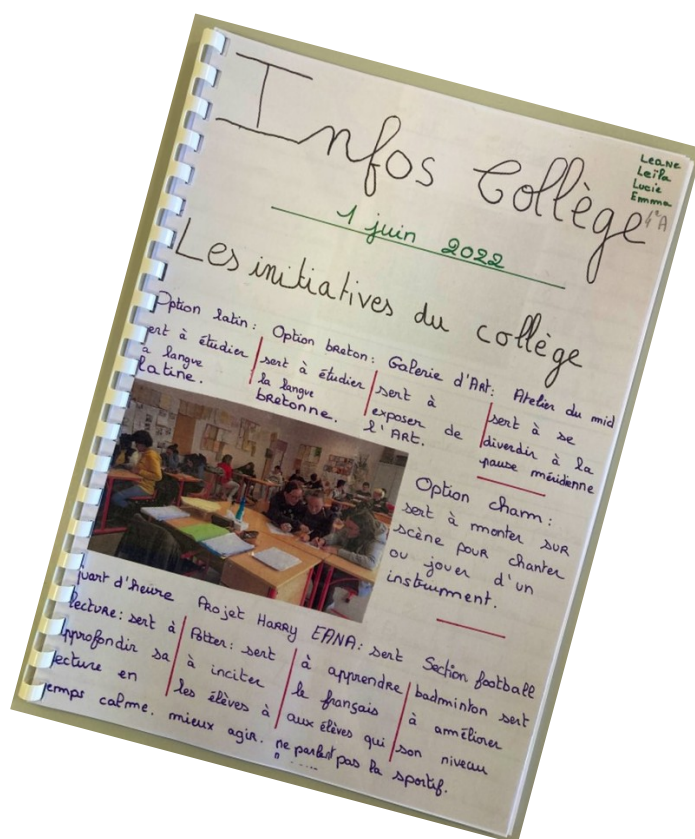 Infos Collège
Leane
Leïla
Lucie
Emma
4eA
1 juin 2022
Les initiatives du collège
Option latin:
sert à étudier
la langue
latine.
Option breton:
sert à étudier
la langue
bretonne.
Galerie d'Art:
sert à
exposer de
l'Art.
Atelier du mid
sert à se
diverdir à la
pause méridienne
Option cham:
sert à monter sur
scène pour chanter
ou jouer d'un
instrument.
quart d'heure
lecture: sert à
approfondir sa
lecture en
temps calme.
Projet Harry
Potter: sert
à inciter
les élèves à
mieux agir.
EANA: sert
à apprendre
le français
aux élèves qui
ne parlent pas la
Section football
badminton sert
à améliorer
son niveau
sportif.